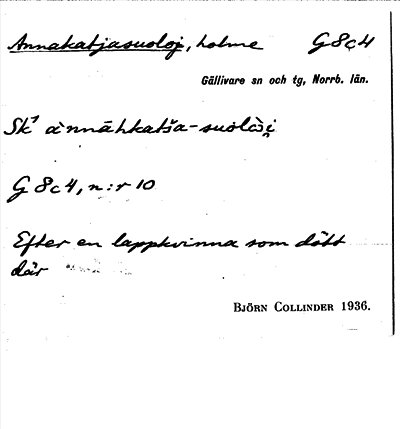 Annakatjasuoloj, holme G8c4
Gällivare sn och tg, Norrb. län.
Sk⁷ a`nnāhkatša-suolo̊i̯
G 8c4, n:r 10
Efter en lappkvinna som dött
där
BJÖRN COLLINDER 1936.